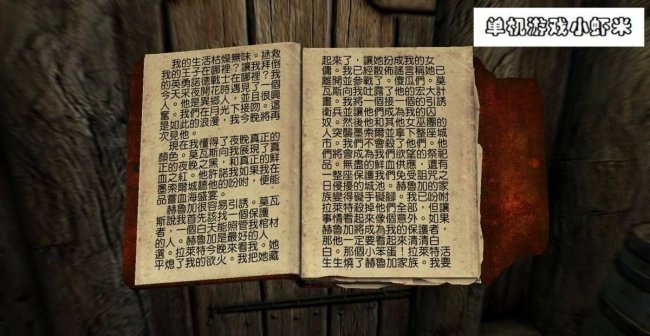 单机游戏小虾米
我的生活枯燥無味。拯救
我的王子在哪裡？讓我拜倒
的英勇諾德戰士在哪裡？我
今天采夜開花時遇見了一個
人。他是異鄉人，並且很興
奮。我們在月光下接吻。這
是如此的浪漫，我今晚將再
次見他。
我懂得了夜晚真正的
顏色。莫瓦斯向我展現了真
正的夜晚之黑，和真正的鮮
血之紅。他許諾我如果我在
墨索爾城聽他的吩咐，便能
品嘗血海盛宴。
赫魯加很容易引誘。莫瓦
斯說我首先該找一個保護
者，一個白天能照管我棺材
的人。赫魯加是最好的人
選。拉萊特今晚來看我。她
平熄了我的欲火。我把她藏
起來了，讓她扮成我的女
僕。我已經散佈謠言稱她已
離開並參戰了。傻瓜們。莫
瓦斯向我吐露了他的宏大計
畫。我將一個接一個的引誘
衛兵並讓他們成為我的囚
奴。然後他和其他女巫團的
人突襲墨索爾並拿下整座城
市。我們不會殺了他們。他
們將會成為我們欲望的祭祀
品。無盡的鮮血供應，還有
一整座保護我們免受詛咒之
日侵擾的城池。赫魯加的家
族變得礙手礙腳。我已吩咐
拉萊特殺掉他們全部，但讓
事情看起來像個意外。如果
赫魯加將成為我的保護者，
那他一定要看起來清清白
白。那個小笨蛋！拉萊特活
生生燒了赫魯加家族。我要